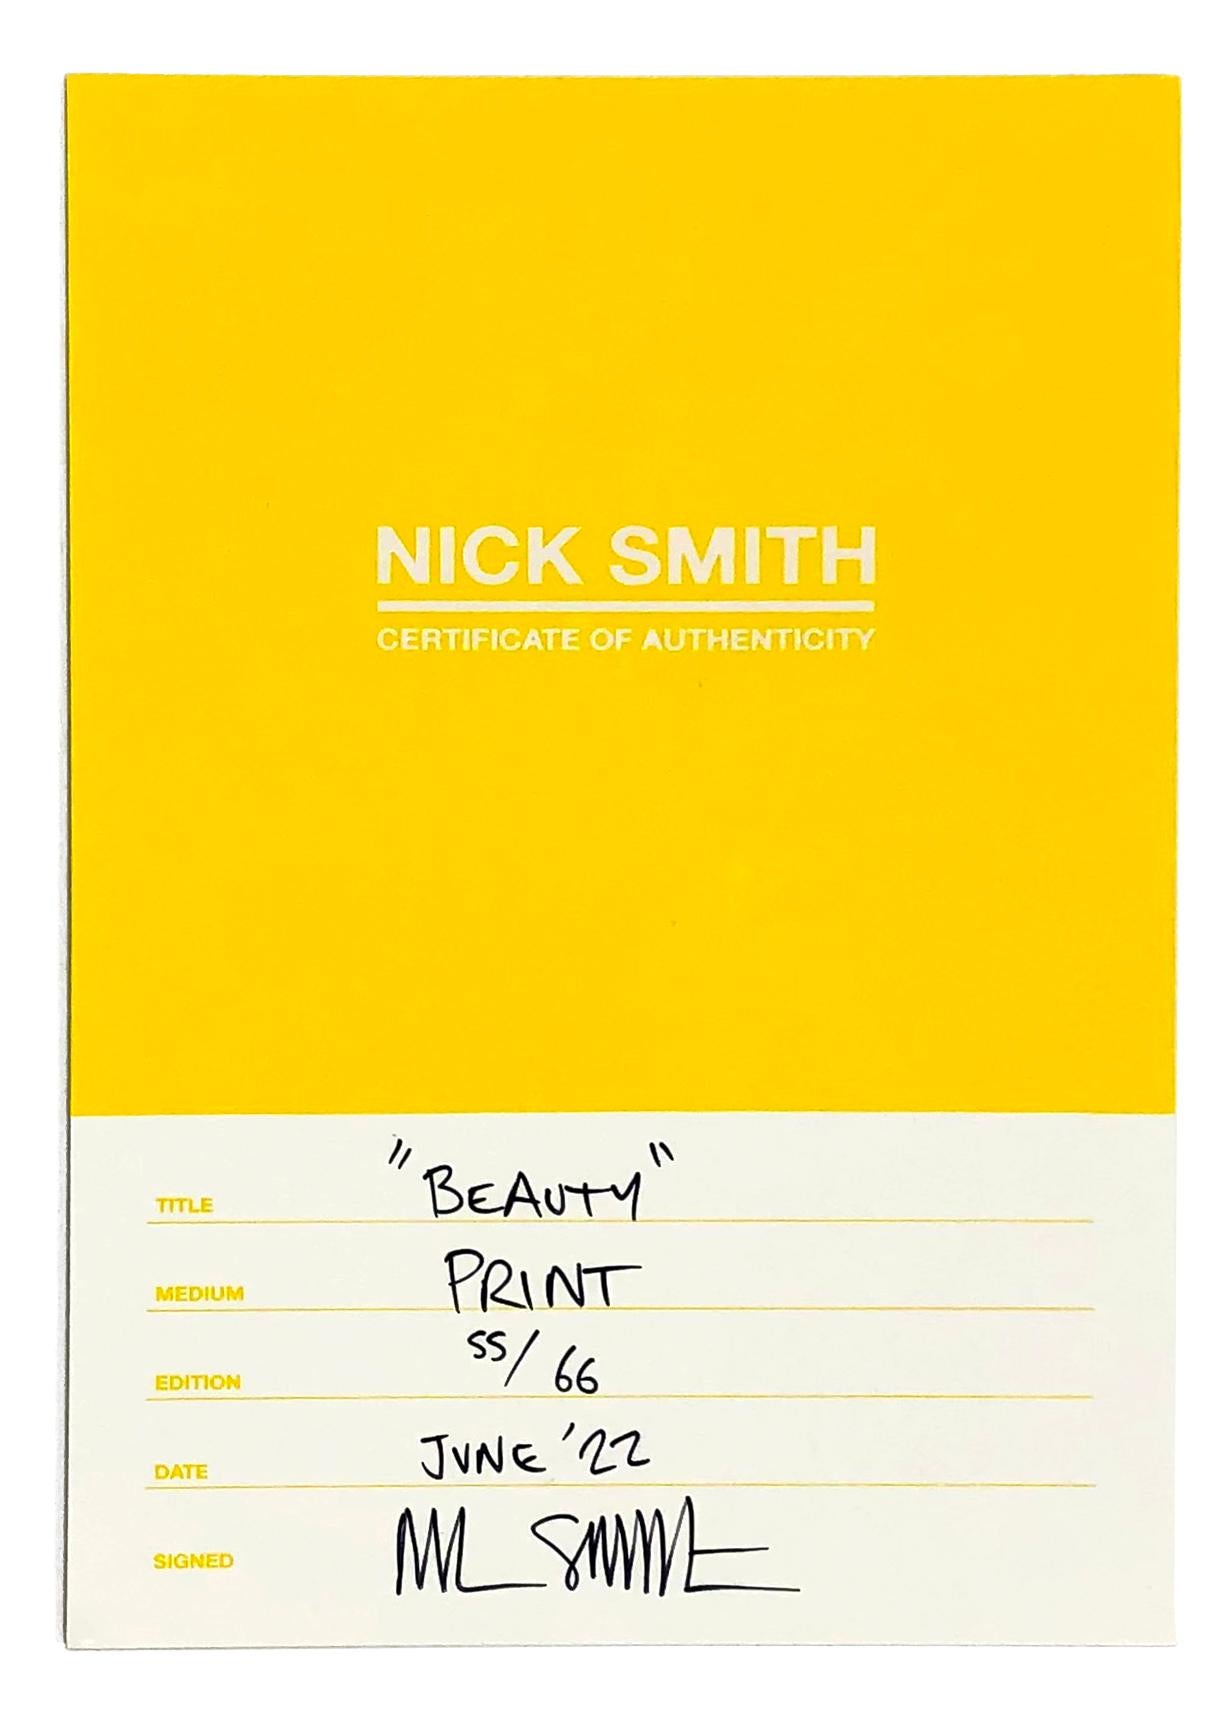 NICK SMITH
CERTIFICATE OF AUTHENTICITY
TITLE "BEAUTY"
MEDIUM PRINT
EDITION 55/66
DATE JUNE '22
SIGNED